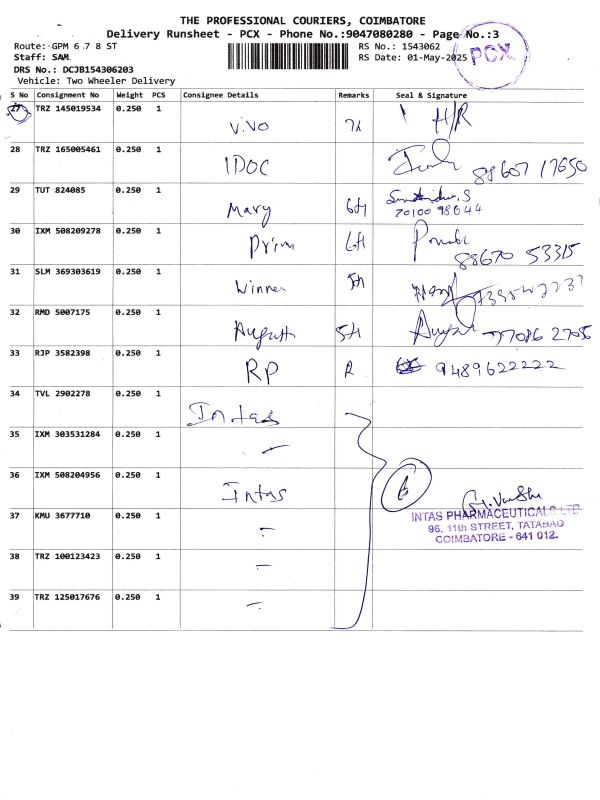 THE PROFESSIONAL COURIERS, COIMBATORE
Delivery Runsheet - PCX - Phone No.:9047080280 - Page No.:3
Route: GPM 6 7 8 ST
RS No.: 1543062
PCX
Staff: SAM
RS Date: 01-May-2025
DRS No.: DCJB154306203
Vehicle: Two Wheeler Delivery
S No Consignment No Weight PCS Consignee Details Remarks Seal & Signature
27 TRZ 145019534 0.250 1 VIVO 7h H/R
28 TRZ 165005461 0.250 1 IDOC 88607 17650
29 TUT 824085 0.250 1 Mary 6th
70100 98644
30 IXM 508209278 0.250 1 Prim 6th
88670 53315
31 SLM 369303619 0.250 1 Winner 5th
32 RMD 5007175 0.250 1 August 5th
33 RJP 3582398 0.250 1 RP R 9489622222
34 TVL 2902278 0.250 1 Intas
35 IXM 303531284 0.250 1
36 IXM 508204956 0.250 1 Intas 6
37 KMU 3677710 0.250 1
INTAS PHARMACEUTICALS LTD
96, 11th STREET, TATABAD
COIMBATORE - 641 012.
38 TRZ 100123423 0.250 1
39 TRZ 125017676 0.250 1